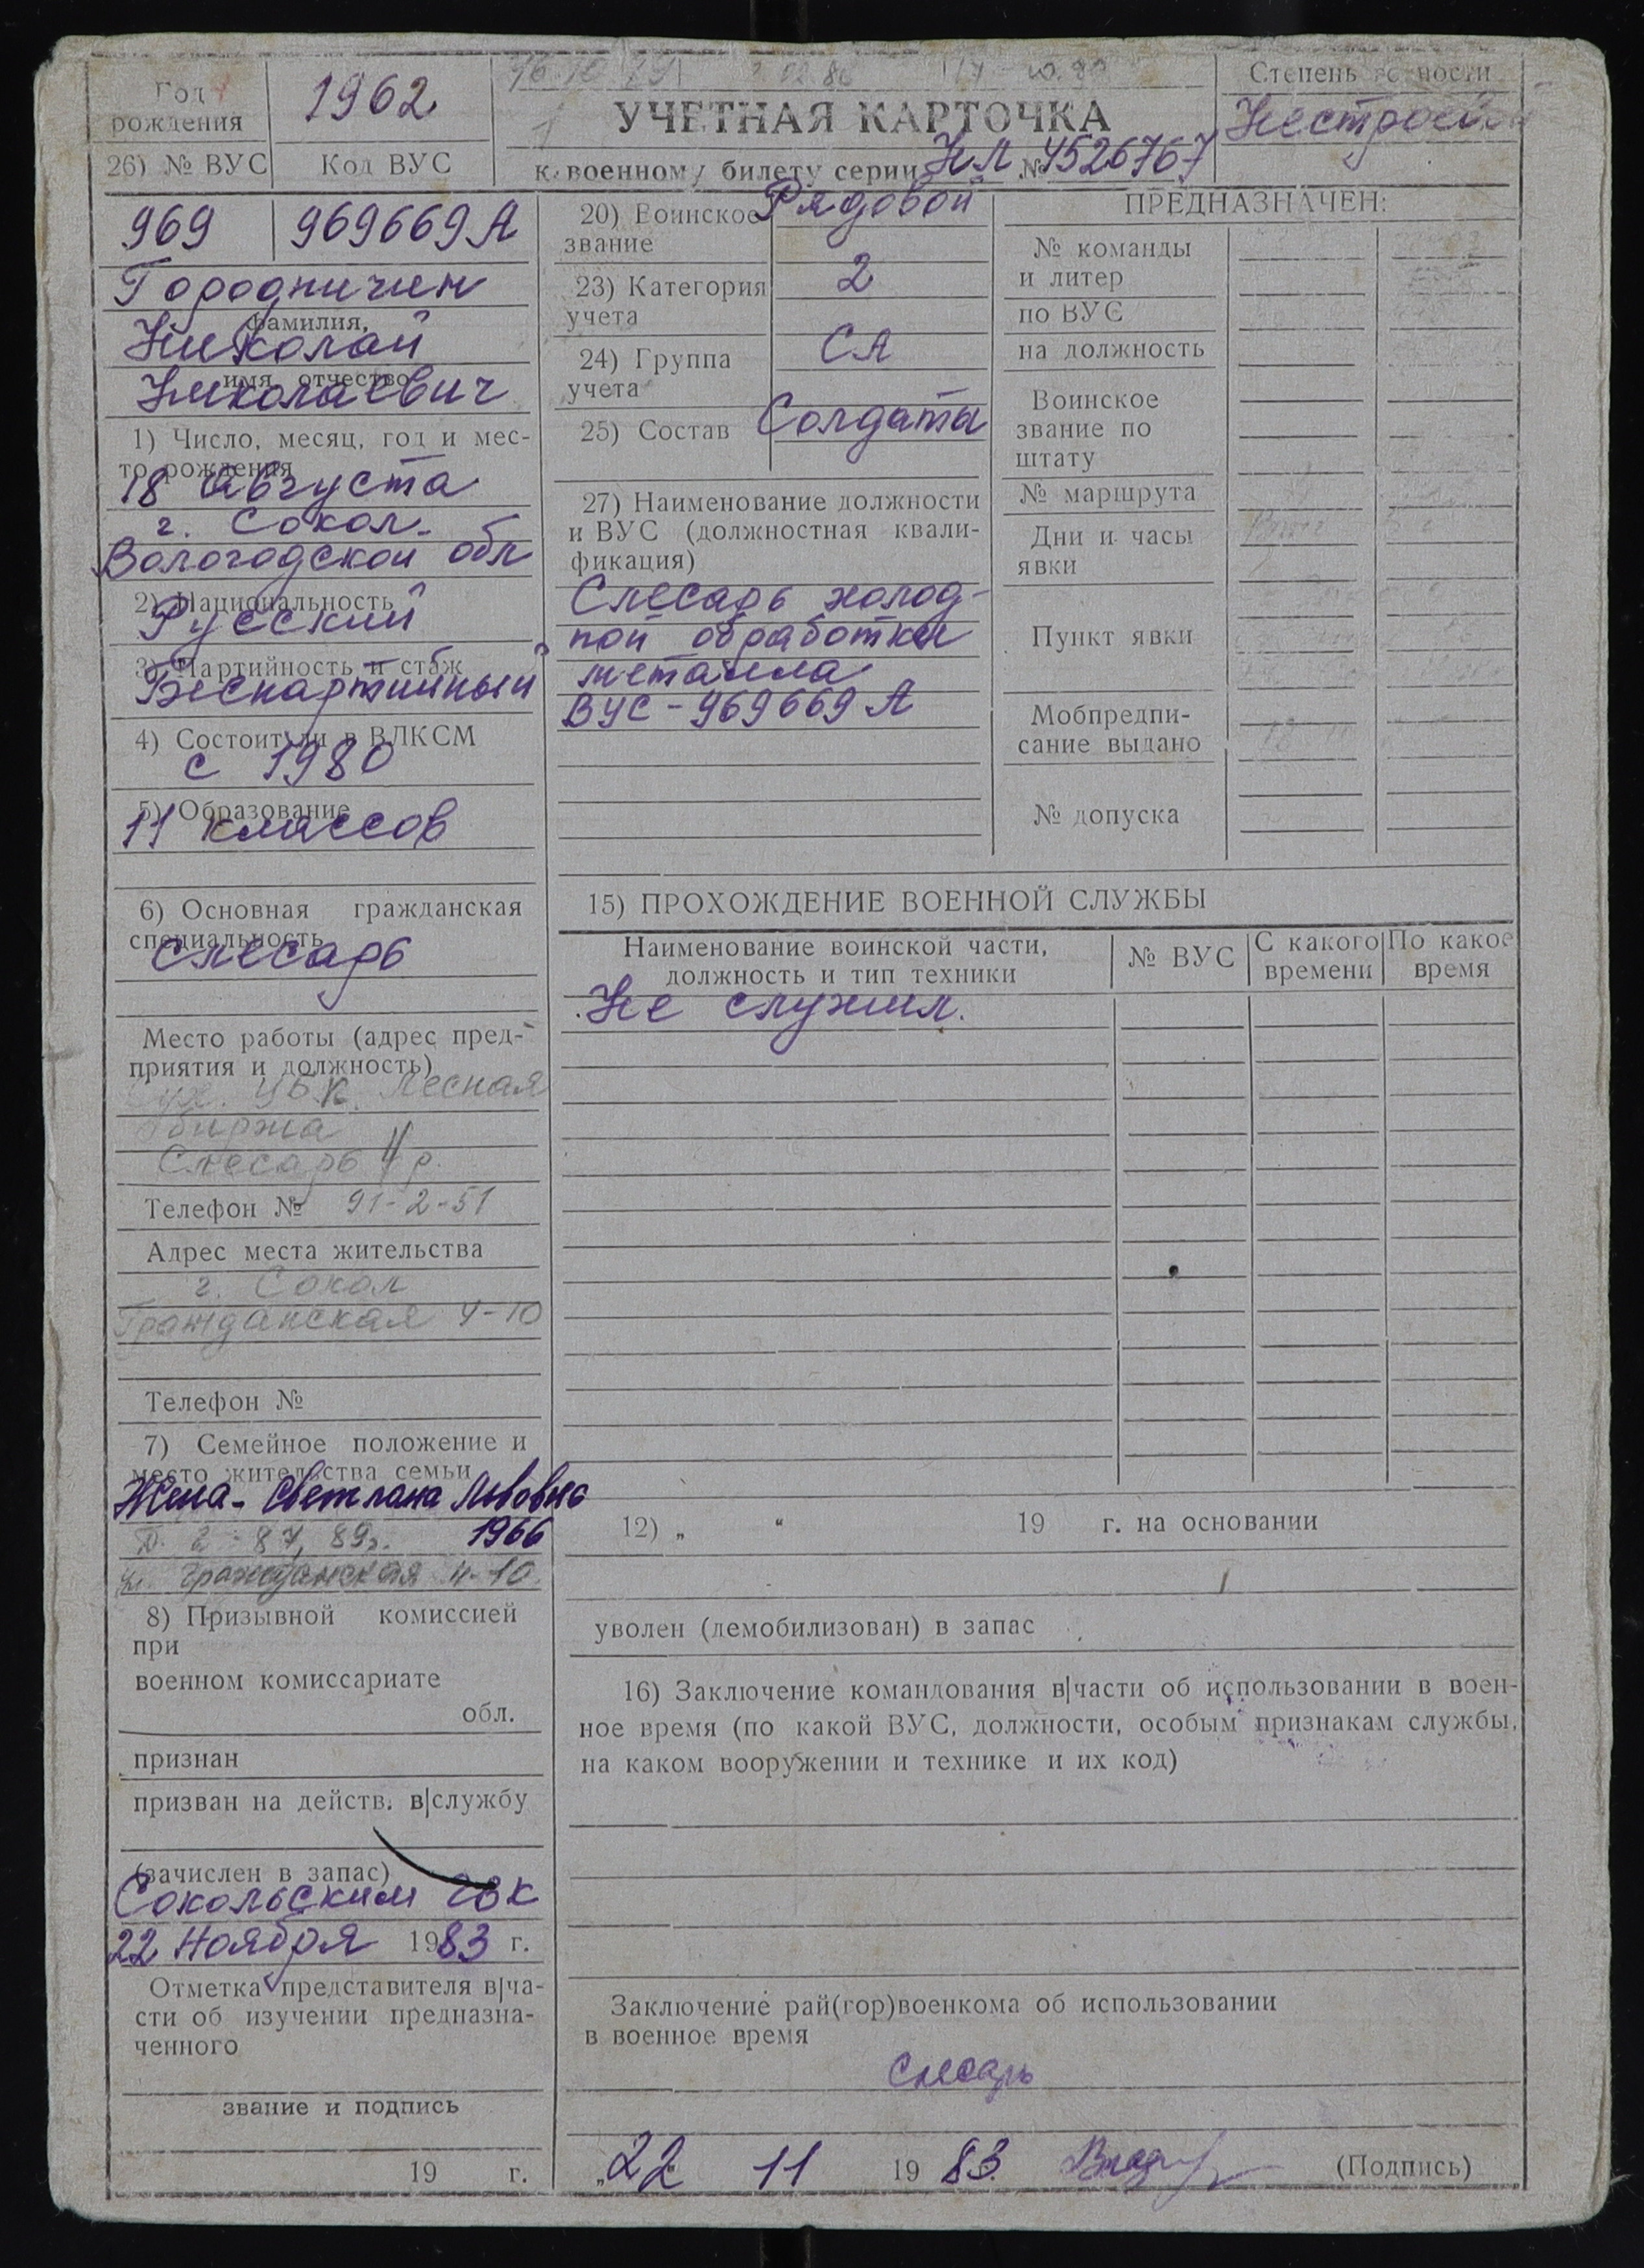 Год
рождения
1962
26) № ВУС
Код ВУС
969
969669А
16.10.79
02.86
УЧЕТНАЯ КАРТОЧКА
к военному билету серии НЛ № 4526767
Степень годности
Нестроевой
Городничин
фамилия,
Николай
имя, отчество
Николаевич
1) Число, месяц, год и мес-
то рождения
18 августа
г. Сокол.
Вологодской обл
2) Национальность
Русский
3) Партийность и стаж
Беспартийный
4) Состоит ли в ВЛКСМ
с 1980
5) Образование
11 классов
6) Основная гражданская
специальность
Слесарь
Место работы (адрес пред-
приятия и должность)
Сух. ЦБК. Лесная
биржа
Слесарь 4 р.
Телефон № 91-2-51
Адрес места жительства
г. Сокол
Гражданская 4-10
Телефон №
7) Семейное положение и
место жительства семьи
Жена - Светлана Львовна
1966
87, 89г.
ул. Гражданская 4-10.
8) Призывной комиссией
при
военном комиссариате
обл.
признан
призван на действ. в|службу
(зачислен в запас)
Сокольским ГВК
22 Ноября 1983 г.
Отметка представителя в|ча-
сти об изучении предназна-
ченного
звание и подпись
19 г.
20) Воинское
звание
Рядовой
23) Категория
учета
2
24) Группа
учета
СА
25) Состав
Солдаты
27) Наименование должности
и ВУС (должностная квали-
фикация)
Слесарь холод-
ной обработки
металла
ВУС - 969669 А
ПРЕДНАЗНАЧЕН:
№ команды
и литер
по ВУС
на должность
Воинское
звание по
штату
№ маршрута
Дни и часы
явки
Пункт явки
Мобпредпи-
сание выдано
№ допуска
15) ПРОХОЖДЕНИЕ ВОЕННОЙ СЛУЖБЫ
Наименование воинской части,
должность и тип техники
№ ВУС
С какого
времени
По какое
время
Не служил.
12) „ “ 19 г. на основании
уволен (демобилизован) в запас
16) Заключение командования в|части об использовании в воен-
ное время (по какой ВУС, должности, особым признакам службы,
на каком вооружении и технике и их код)
Заключение рай(гор)военкома об использовании
в военное время
Слесарь
„22 11 19 83.
(Подпись)